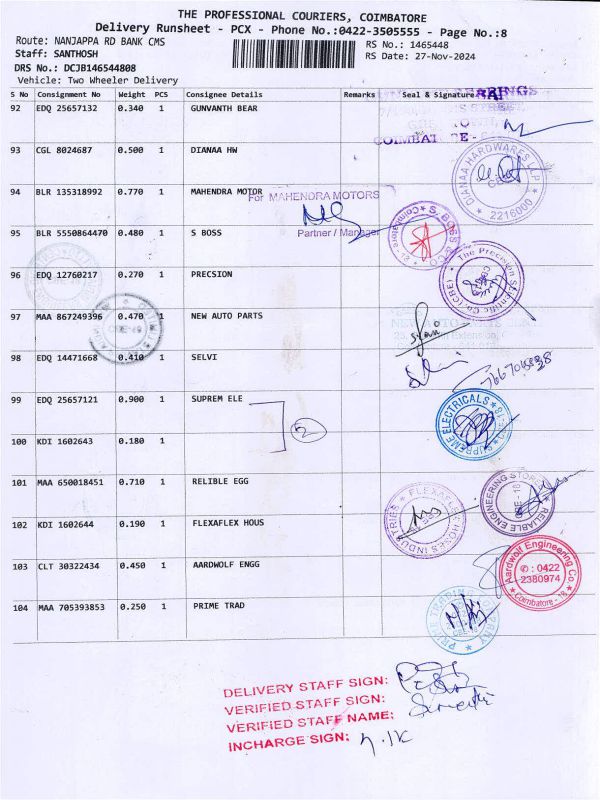 THE PROFESSIONAL COURIERS, COIMBATORE
Delivery Runsheet - PCX - Phone No.:0422-3505555 - Page No.:8
Route: NANJAPPA RD BANK CMS
RS No.: 1465448
Staff: SANTHOSH
RS Date: 27-Nov-2024
DRS No.: DCJB146544808
Vehicle: Two Wheeler Delivery
S No Consignment No Weight PCS Consignee Details Remarks Seal & Signature
92 EDQ 25657132 0.340 1 GUNVANTH BEAR
93 CGL 8024687 0.500 1 DIANAA HW
DIANAA HARDWARES LLP
* 2216000 *
94 BLR 135318992 0.770 1 MAHENDRA MOTOR
For MAHENDRA MOTORS
Partner / Manager
95 BLR 5550864470 0.480 1 S BOSS
S. BOSS & CO
96 EDQ 12760217 0.270 1 PRECSION
The Precision Scientific Co (CBE)
97 MAA 867249396 0.470 1 NEW AUTO PARTS
98 EDQ 14471668 0.410 1 SELVI
99 EDQ 25657121 0.900 1 SUPREM ELE
2
SUPREME ELECTRICALS
100 KDI 1602643 0.180 1
101 MAA 650018451 0.710 1 RELIBLE EGG
RELIABLE ENGINEERING STORES
102 KDI 1602644 0.190 1 FLEXAFLEX HOUS
FLEXAFLEX HOSES INDUSTRIES
103 CLT 30322434 0.450 1 AARDWOLF ENGG
Aardwolf Engineering Co
✆ : 0422
2380974
Coimbatore - 18
104 MAA 705393853 0.250 1 PRIME TRAD
DELIVERY STAFF SIGN:
VERIFIED STAFF SIGN:
VERIFIED STAFF NAME:
INCHARGE SIGN: